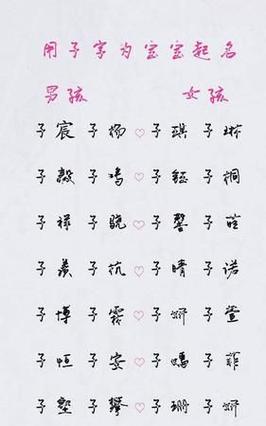 用子字为宝宝起名
男孩 女孩
子宸 子杨 ♡ 子琪 子琳
子毅 子鸿 ♡ 子钰 子桐
子禄 子骁 ♡ 子馨 子晗
子羲 子航 ♡ 子晴 子诺
子博 子霖 ♡ 子妍 子萱
子恒 子安 ♡ 子嫣 子菲
子塑 子攀 ♡ 子珊 子妍